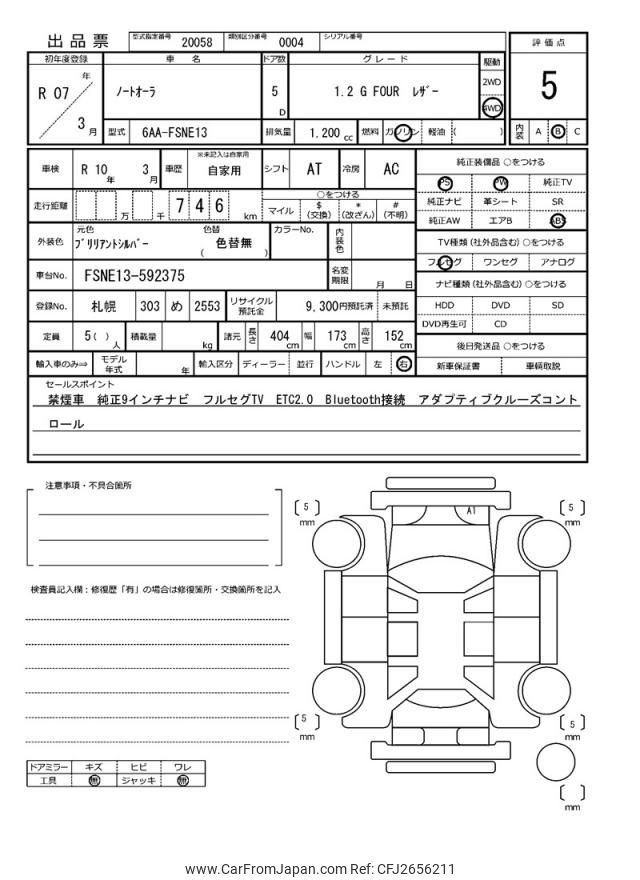 出品票 型式指定番号 20058 類別区分番号 0004 シリアル番号
評価点
5
初年度登録 車名 ドア数 グレード 駆動
R 07 年 ノートオーラ 5 D 1.2 G FOUR レザー 2WD
4WD
3月 型式 6AA-FSNE13 排気量 1,200 cc 燃料 ガソリン 軽油 ( ) 内装 A B C
車検 R 10 年 3 月 車歴 ※未記入は自家用 自家用 シフト AT 冷房 AC
純正装備品 ○をつける
PS PW 純正TV
純正ナビ 革シート SR
純正AW エアB ABS
走行距離 万 千 7 4 6 km ○をつける
マイル $(交換) *(改ざん) #(不明)
外装色 元色 ブリリアントシルバー 色替 ( 色替無 ) カラーNo. 内装色
TV種類(社外品含む)○をつける
フルセグ ワンセグ アナログ
車台No. FSNE13-592375 名変期限 月 日
ナビ種類(社外品含む)○をつける
HDD DVD SD
DVD再生可 CD
登録No. 札幌 303 め 2553 リサイクル預託金 9,300円預託済 未預託
定員 5( )人 積載量 kg 諸元 長さ 404 cm 幅 173 cm 高さ 152 cm
後日発送品 ○をつける
新車保証書 車輌取説
輸入車のみ⇒ モデル年式 年 輸入区分 ディーラー 並行 ハンドル 左 右
セールスポイント
禁煙車 純正9インチナビ フルセグTV ETC2.0 Bluetooth接続 アダプティブクルーズコント
ロール
注意事項・不具合箇所
検査員記入欄:修復歴「有」の場合は修復箇所・交換箇所を記入
A1
5 mm
5 mm
5 mm
5 mm
mm
ドアミラー キズ ヒビ ワレ
工具 無 ジャッキ 無
www.CarFromJapan.com Ref: CFJ2656211